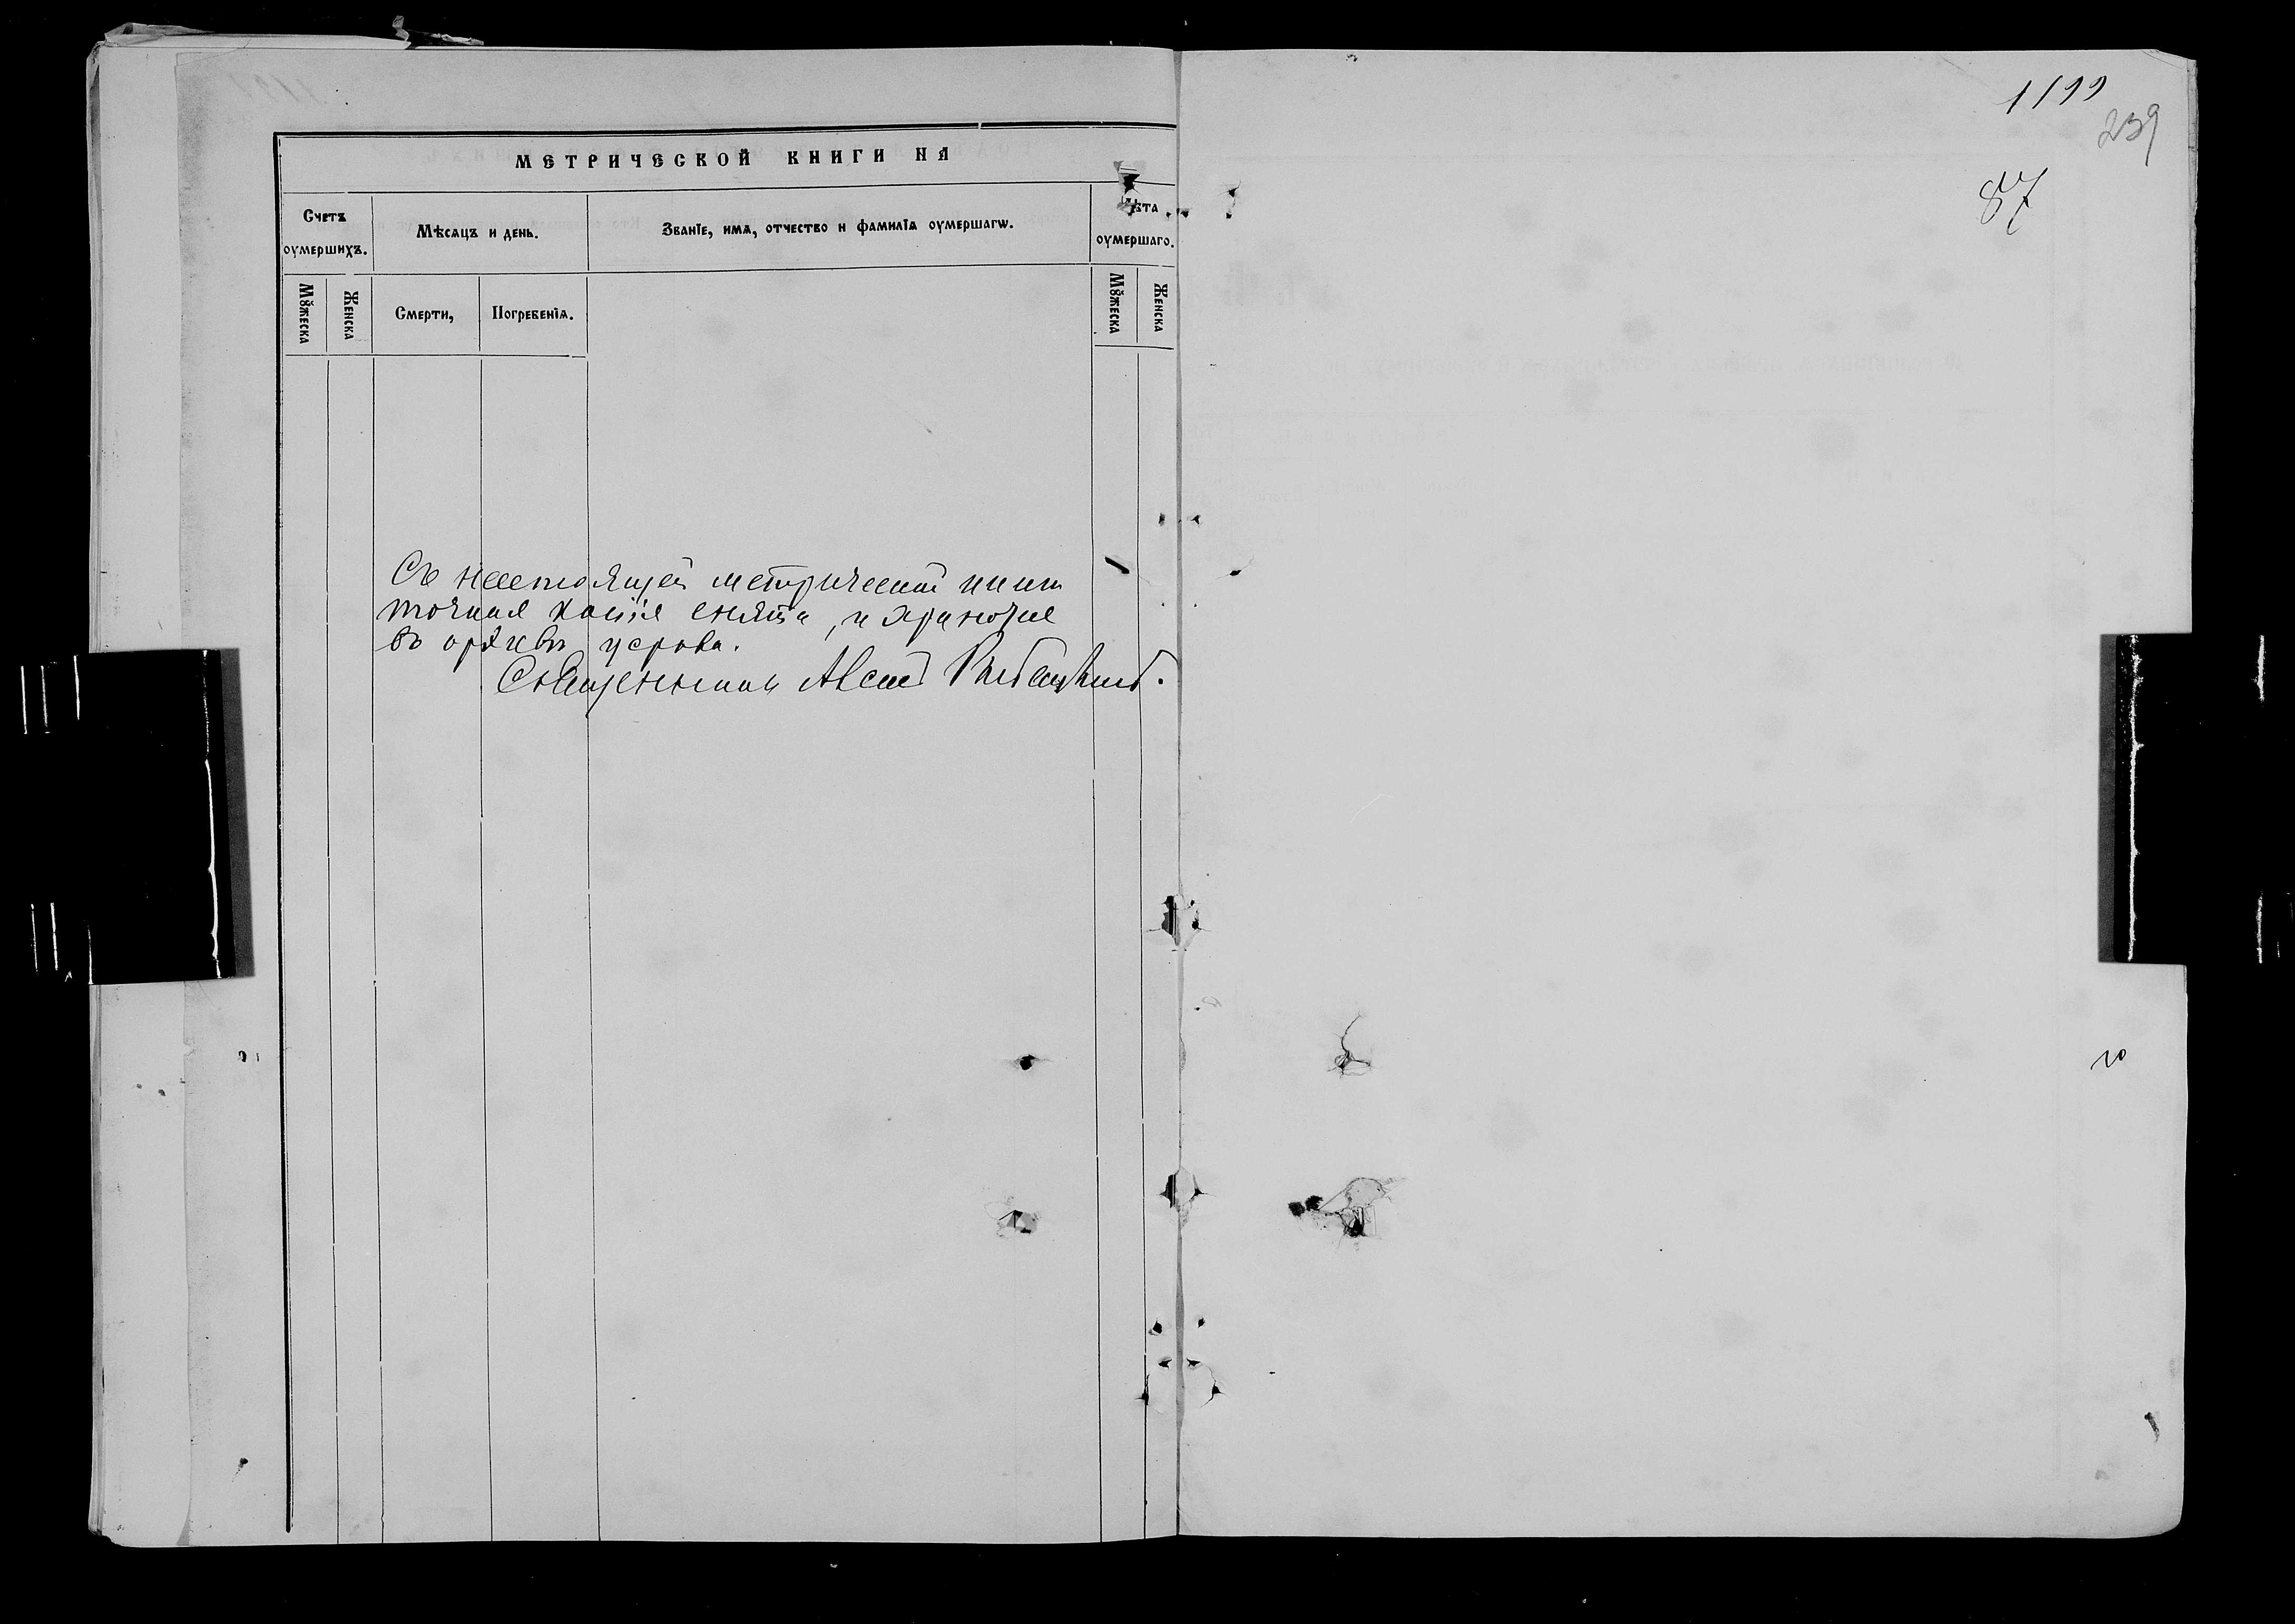 МЕТРИЧЕСКОЙ КНИГИ НА
Счетъ оумершихъ.
Мѣсѧцъ и день.
Званїе, имѧ, отчество и фамилїѧ оумершагѡ.
Лѣта оумершаго.
Мꙋжеска
Женска
Смерти,
Погребенїѧ.
Мꙋжеска
Женска
Съ настоящей метрической книги
точная копія снята, и хранится
въ архивѣ церкви.
Священникъ
1199
239
87